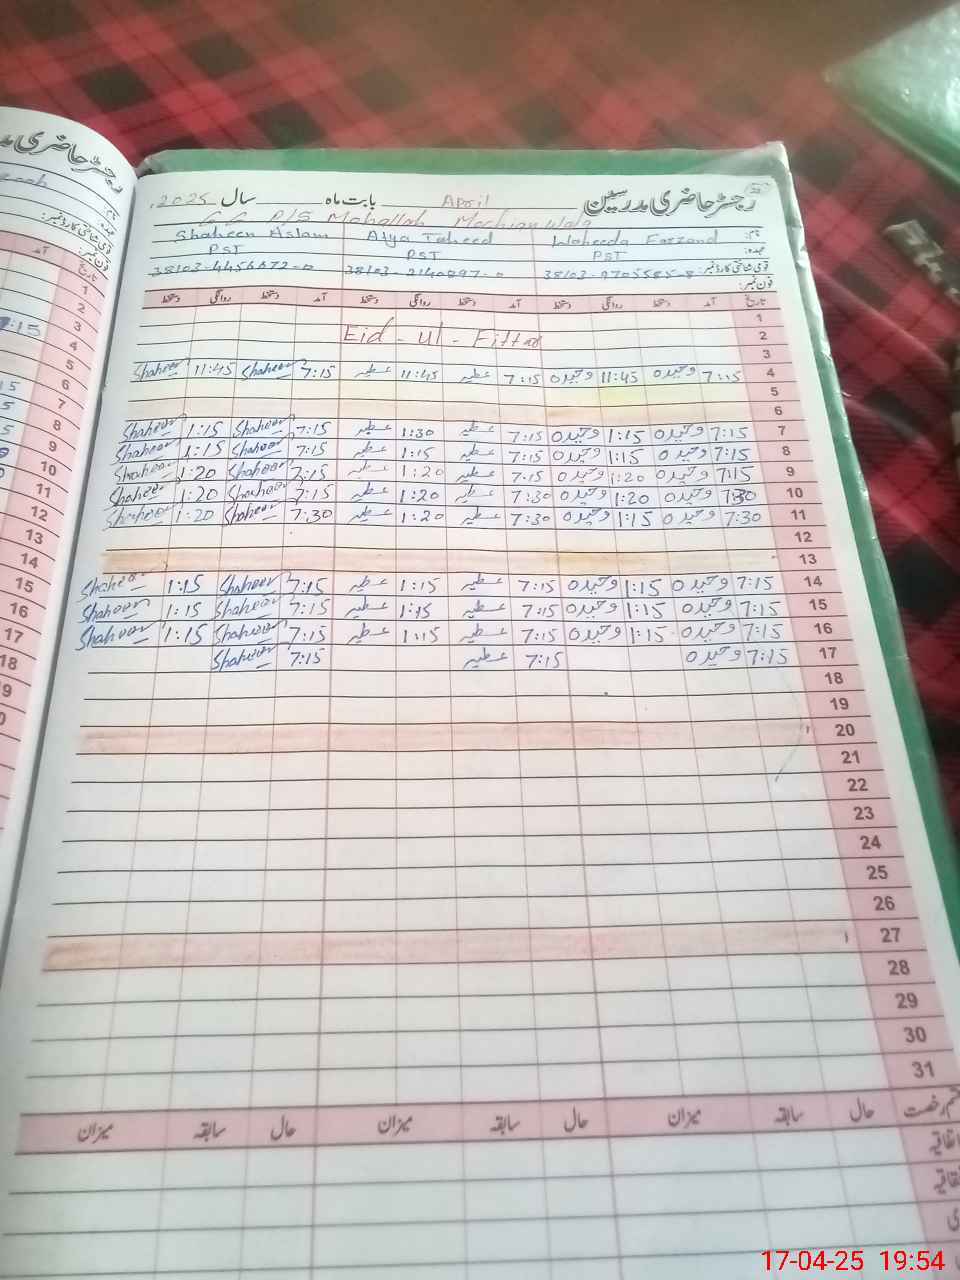 رجسٹر حاضری مدرسین بابت ماہ April سال 2025
G G P/S Mohallah Mochian Wala
نام: Waheeda Farzand Atya Taheed Shaheen Aslam
عہدہ: PST PST PST
قومی شناختی کارڈ نمبر: 38103-9705585-8 38103-2140897-0 38103-4456672-0
فون نمبر:
تاریخ آمد دستخط روانگی دستخط آمد دستخط روانگی دستخط آمد دستخط روانگی دستخط
1
2 Eid-ul-Fittar
3
4 7:15 وحیدہ 11:45 وحیدہ 7:15 عطیہ 11:45 عطیہ 7:15 Shaheen 11:45 Shaheen
5
6
7 7:15 وحیدہ 1:15 وحیدہ 7:15 عطیہ 1:30 عطیہ 7:15 Shaheen 1:15 Shaheen
8 7:15 وحیدہ 1:15 وحیدہ 7:15 عطیہ 1:15 عطیہ 7:15 Shaheen 1:15 Shaheen
9 7:15 وحیدہ 1:20 وحیدہ 7:15 عطیہ 1:20 عطیہ 7:15 Shaheen 1:20 Shaheen
10 7:30 وحیدہ 1:20 وحیدہ 7:30 عطیہ 1:20 عطیہ 7:15 Shaheen 1:20 Shaheen
11 7:30 وحیدہ 1:15 وحیدہ 7:30 عطیہ 1:20 عطیہ 7:30 Shaheen 1:20 Shaheen
12
13
14 7:15 وحیدہ 1:15 وحیدہ 7:15 عطیہ 1:15 عطیہ 7:15 Shaheen 1:15 Shaheen
15 7:15 وحیدہ 1:15 وحیدہ 7:15 عطیہ 1:15 عطیہ 7:15 Shaheen 1:15 Shaheen
16 7:15 وحیدہ 1:15 وحیدہ 7:15 عطیہ 1:15 عطیہ 7:15 Shaheen 1:15 Shaheen
17 7:15 وحیدہ 7:15 عطیہ 7:15 Shaheen
18
19
20
21
22
23
24
25
26
27
28
29
30
31
قسم رخصت حال سابقہ میزان حال سابقہ میزان حال سابقہ میزان
اتفاقیہ
رجسٹر حاضری
نام:
عہدہ:
قومی شناختی کارڈ نمبر:
فون نمبر:
تاریخ آمد
1
2
3 7:15
4
5
6
7
8
9
10
11
12
13
14
15
16
17
18
17-04-25 19:54